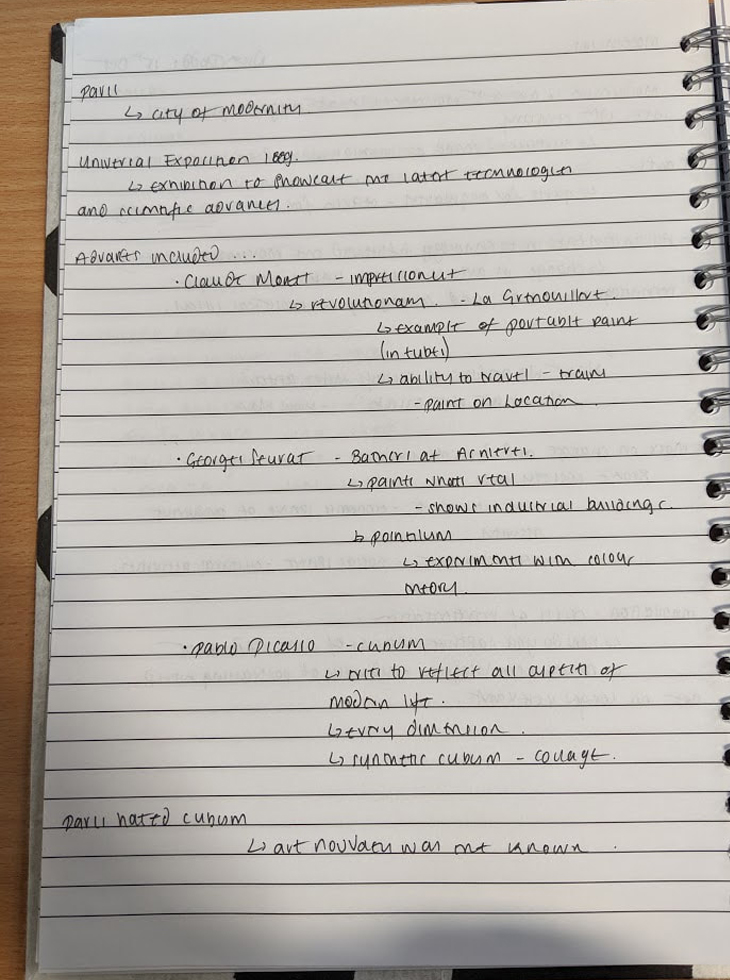 Paris
↳ city of modernity
Universal Exposition 1889.
↳ exhibition to showcase the latest technologies
and scientific advances.
Advances included ...
• Claude Monet - impressionist
↳ revolutionary. - La Grenouillere.
↳ example of portable paint
(in tubes)
↳ ability to travel - trains
- paint on Location
• Georges Seurat - Bathers at Asnieres.
↳ paints whats real
- shows industrial buildings.
↳ pointilism
↳ experiments with colour
theory.
• Pablo Picasso - cubism
↳ tries to reflect all aspects of
modern life.
↳ every dimension.
↳ synthetic cubism - collage.
Paris hated cubism
↳ art nouveau was the known